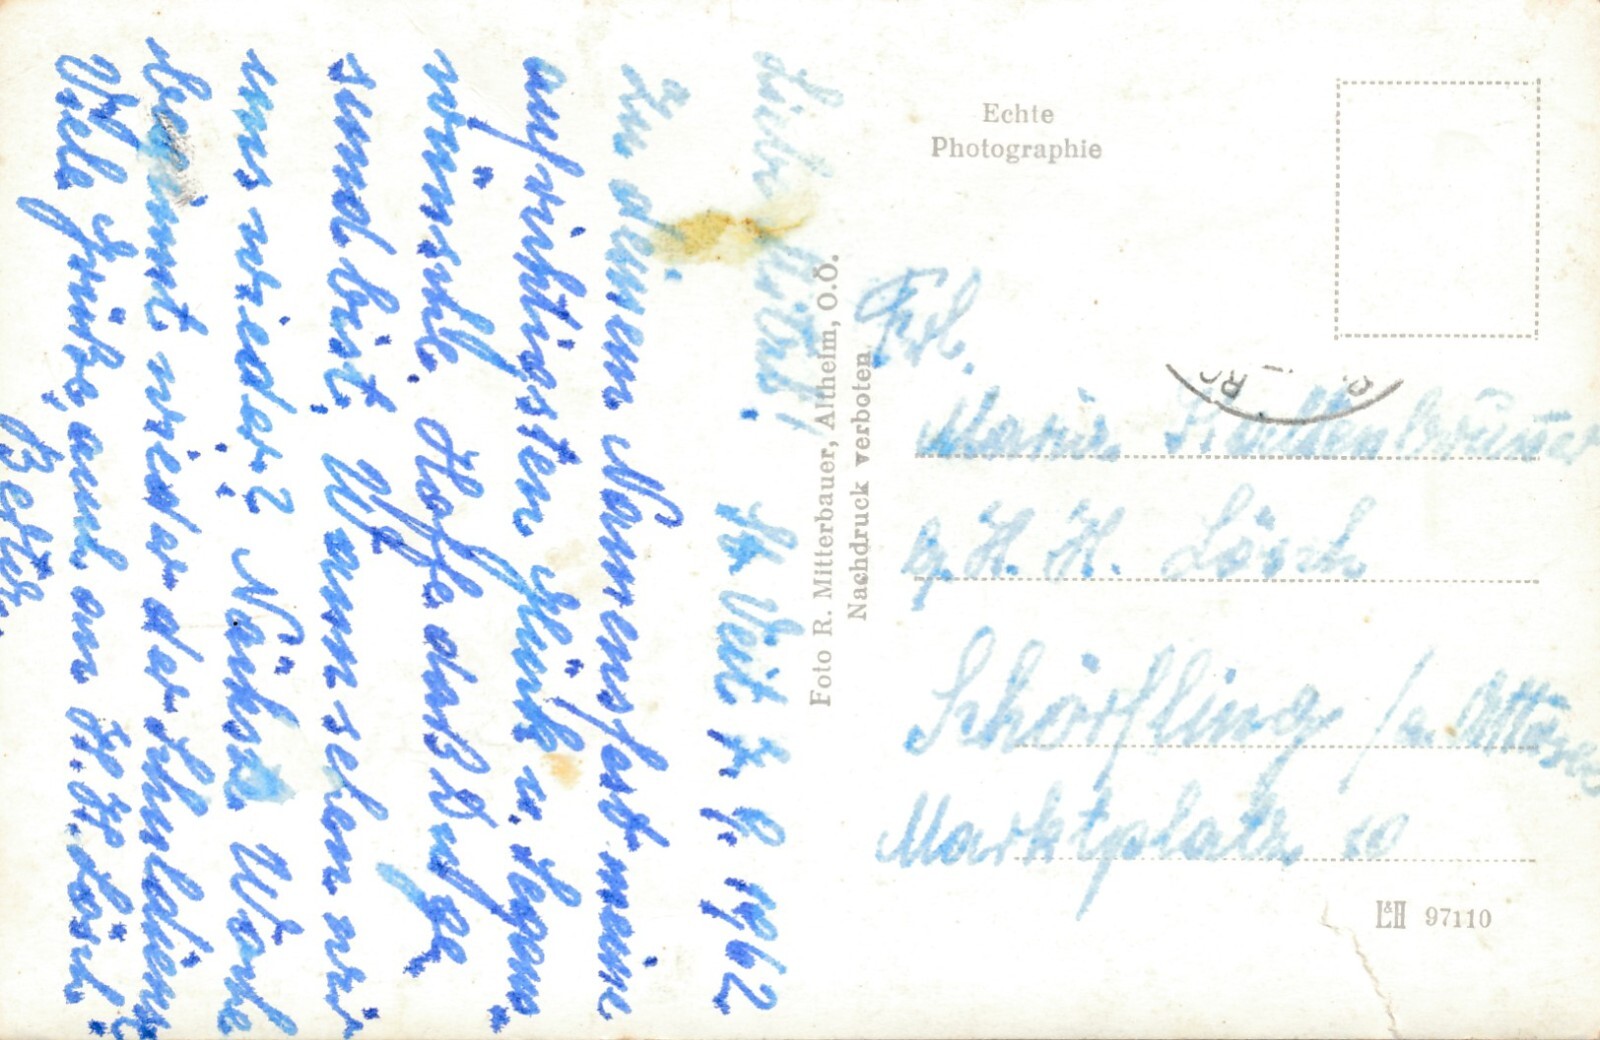 St. Veit 7. 9. 1962
Zu deinem Namensfest meine
aufrichtigsten Glück u. Segens
wünsche. Hoffe daß Du ge
sund bist. Wann sehen wir
uns wieder? Nächste Woche
beginnt wieder der Schuldienst
Viele Grüße, auch an H. H. Lösch.
Echte
Photographie
Foto R. Mitterbauer, Altheim, O.Ö.
Nachdruck verboten
Frl.
Maria
H. H. Lösch
Schörfling / a. Attersee
Marktplatz 10
L&H 97110